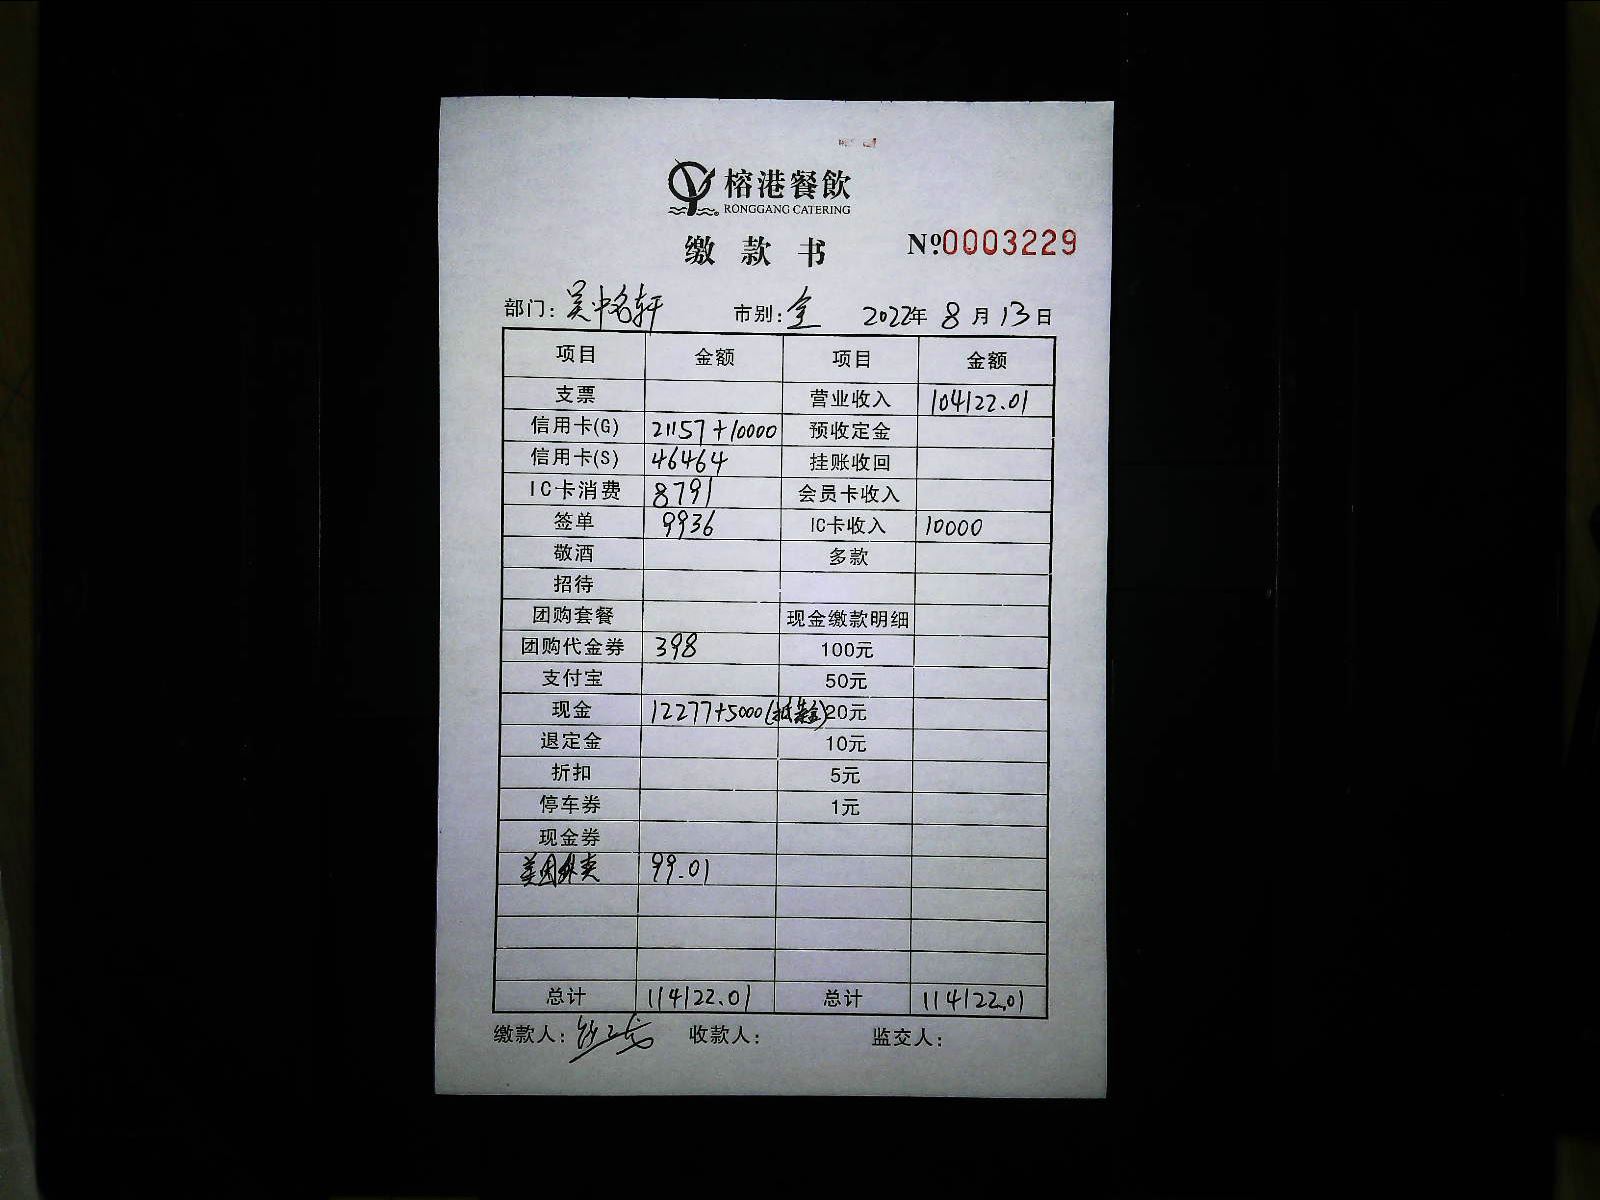 榕港餐飲
RONGGANG CATERING
缴款书 Nº0003229
部门: 吴中名轩 市别: 全 2022年 8月13日
项目 金额 项目 金额
支票 营业收入 104122.01
信用卡(G) 21157+10000 预收定金
信用卡(S) 46464 挂账收回
IC卡消费 8791 会员卡收入
签单 9936 IC卡收入 10000
敬酒 多款
招待
团购套餐 现金缴款明细
团购代金券 398 100元
支付宝 50元
现金 12277+5000 20元
退定金 10元
折扣 5元
停车券 1元
现金券
美团外卖 99.01
总计 114122.01 总计 114122.01
缴款人: 收款人: 监交人: